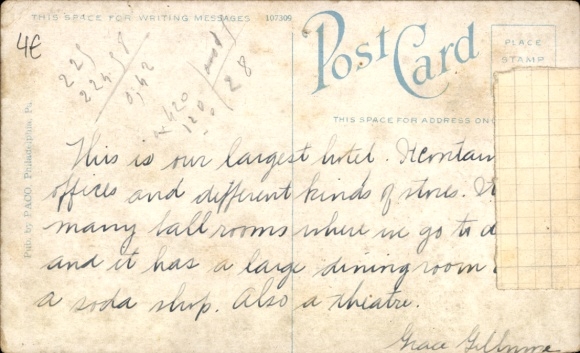 THIS SPACE FOR WRITING MESSAGES 107309
Post Card
PLACE
STAMP
4€
225
22458
0,42
28
120
THIS SPACE FOR ADDRESS ON
Pub. by PACO, Philadelphia, Pa.
This is our largest hotel. It contain
offices and different kinds of stores. It
many ball rooms where we go to d
and it has a large dining room
a soda shop. Also a theatre.
Grace